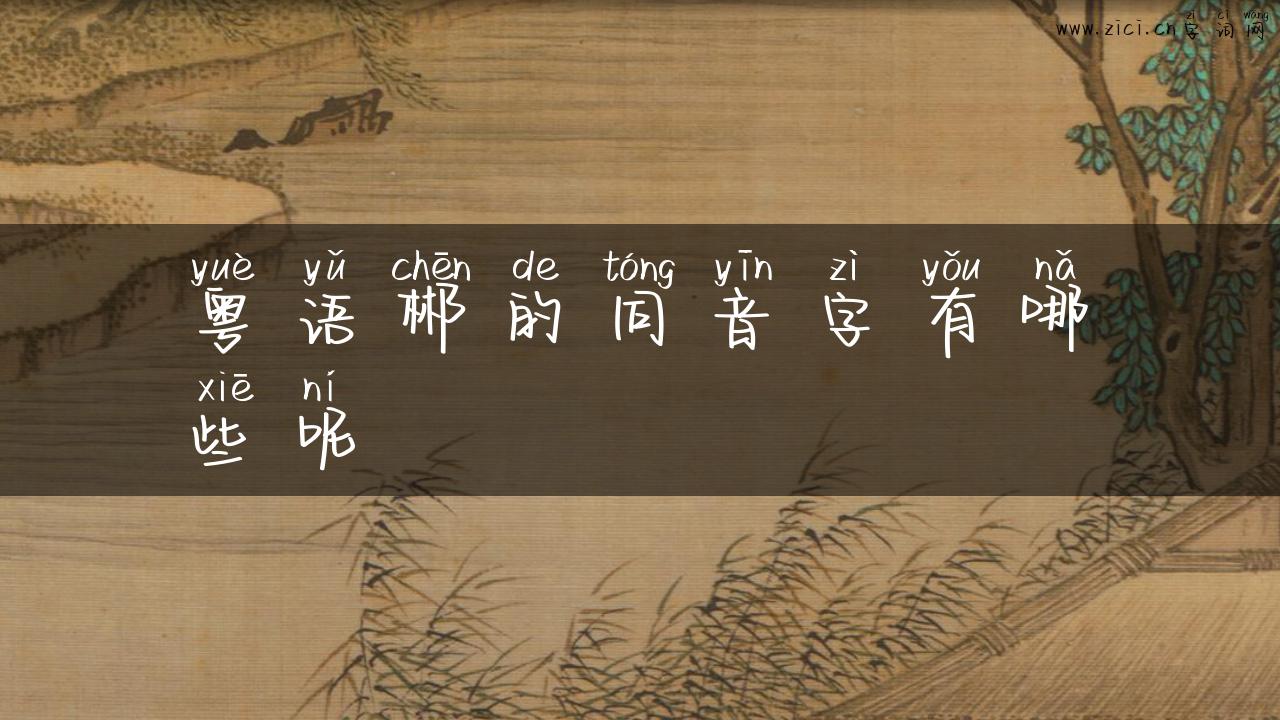 zì cí wǎng
www.zici.cn字词网
yuè yǔ chēn de tóng yīn zì yǒu nǎ
粤语郴的同音字有哪
xiē ní
些呢